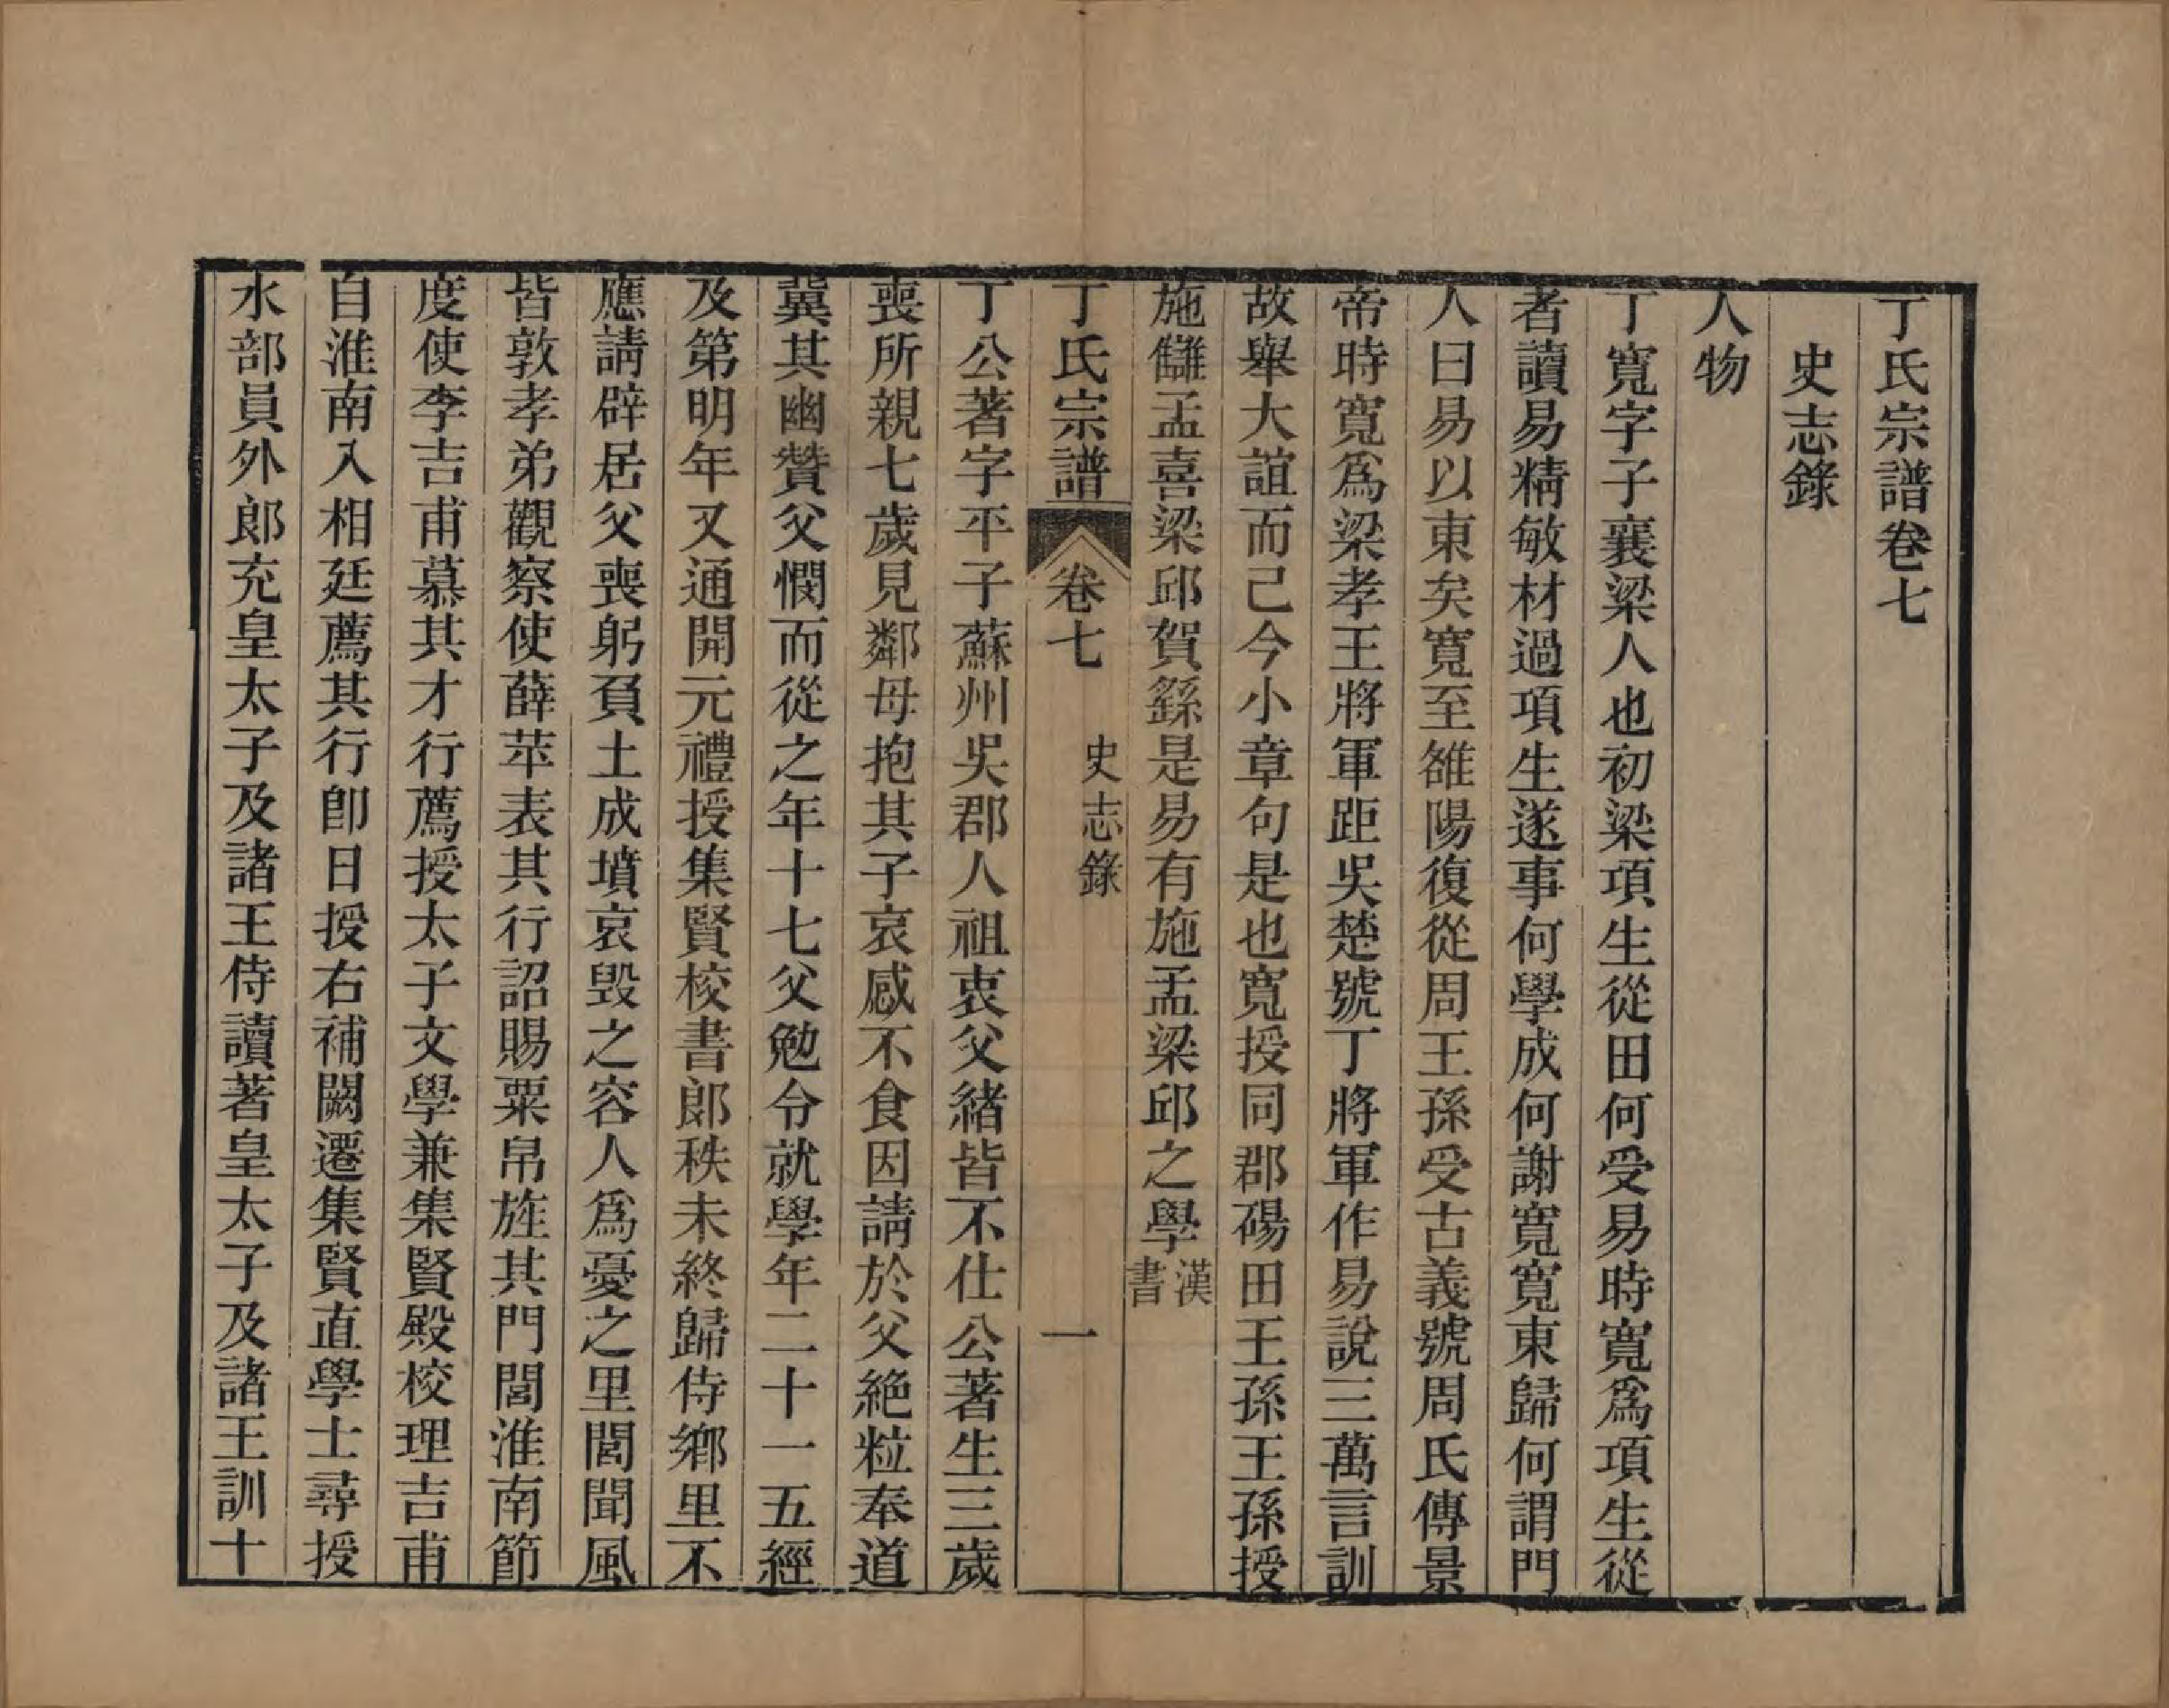 丁氏宗譜卷七
史志錄
人物
丁寬字子襄梁人也初梁項生從田何受易時寬爲項生從
者讀易精敏材過項生遂事何學成何謝寬寬東歸何謂門
人曰易以東矣寬至雒陽復從周王孫受古義號周氏傳景
帝時寬爲梁孝王將軍距吳楚號丁將軍作易說三萬言訓
故舉大誼而己今小章句是也寬授同郡碭田王孫王孫授
施讎孟喜梁邱賀繇是易有施孟梁邱之學漢書
丁氏宗譜 卷七 史志錄 一
丁公著字平子蘇州吳郡人祖衷父緒皆不仕公著生三歲
喪所親七歲見鄰母抱其子哀感不食因請於父絶粒奉道
冀其幽贊父憫而從之年十七父勉令就學年二十一五經
及第明年又通開元禮授集賢校書郞秩未終歸侍鄉里不
應請辟居父喪躬負土成墳哀毀之容人爲憂之里閭聞風
皆敦孝弟觀察使薛苹表其行詔賜粟帛旌其門閭淮南節
度使李吉甫慕其才行薦授太子文學兼集賢殿校理吉甫
自淮南入相廷薦其行卽日授右補闕遷集賢直學士尋授
水部員外郞充皇太子及諸王侍讀著皇太子及諸王訓十